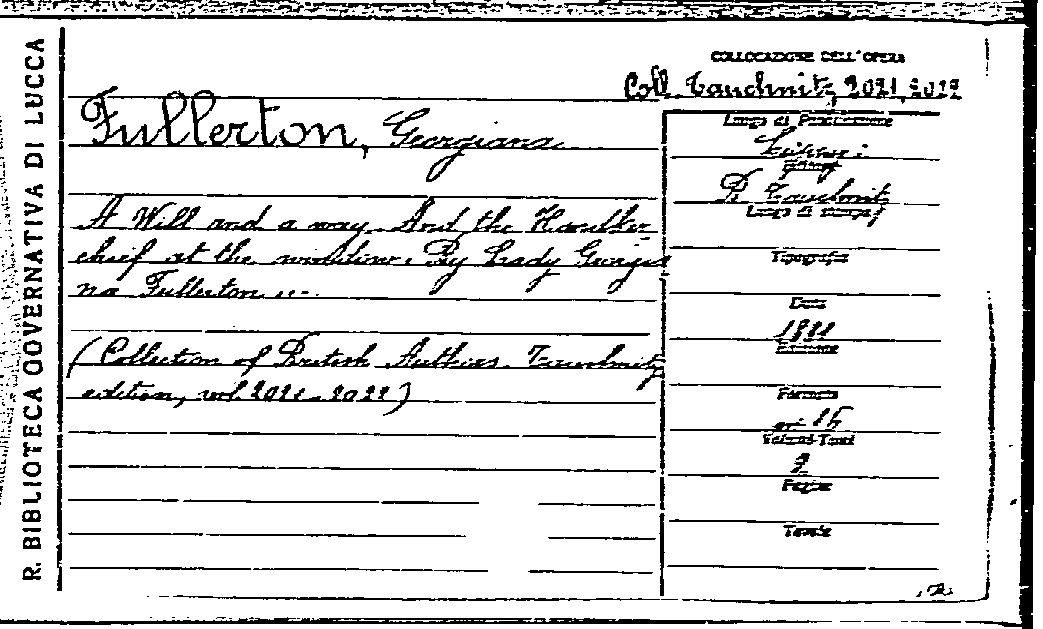 R. BIBLIOTECA GOVERNATIVA DI LUCCA
COLLOCAZIONE DELL'OPERA
Coll. Tauchnitz, 2021, 2022
Fullerton, Georgiana
A Will and a way. And the Handker
chief at the window. By Lady Georgia
na Fullerton ...
(Collection of British Authors. Tauchnitz
edition, vol. 2021-2022)
Luogo di Pubblicazione
B. Tauchnitz
Luogo di stampa
Tipografia
Data
1881
Edizione
Formato
in 16
Volumi-Tomi
2
Pagine
Tavole